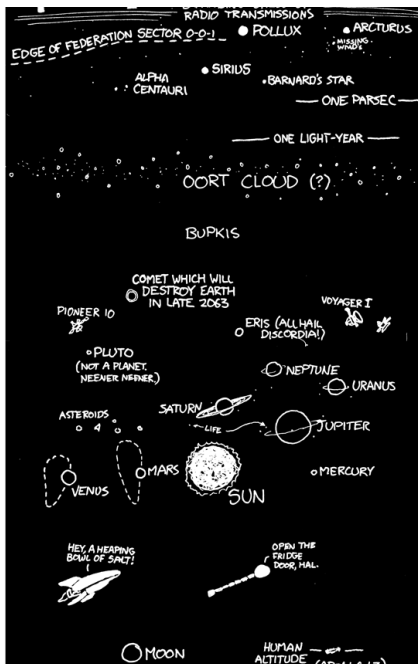 RADIO TRANSMISSIONS
EDGE OF FEDERATION SECTOR 0-0-1
POLLUX
ARCTURUS
MISSING WMD's
SIRIUS
ALPHA
CENTAURI
BARNARD'S STAR
ONE PARSEC
ONE LIGHT-YEAR
OORT CLOUD (?)
BUPKIS
COMET WHICH WILL
DESTROY EARTH
IN LATE 2063
PIONEER 10
VOYAGER I
ERIS (ALL HAIL
DISCORDIA!)
PLUTO
(NOT A PLANET.
NEENER NEENER.)
NEPTUNE
URANUS
SATURN
ASTEROIDS
LIFE
JUPITER
VENUS
MARS
SUN
MERCURY
HEY, A HEAPING
BOWL OF SALT!
OPEN THE
FRIDGE
DOOR, HAL.
MOON
HUMAN
ALTITUDE